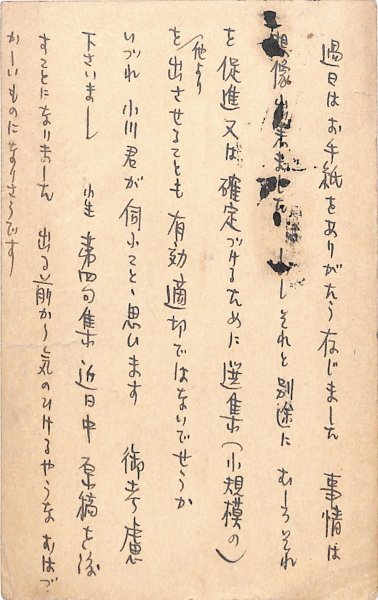 過日はお手紙をありがたう存じました 事情は
想像出来ました しかしそれと別途に むしろそれ
を促進又は確定づけるために選集(小規模の)
を他より出させることも有効適切ではないでせうか
いづれ小川君が伺ふことゝ思ひます 御考慮
下さいまし 小生 第四句集 近日中 原稿を
すことになりました 出る前から気のひけるやうな
かしいものになりさうです